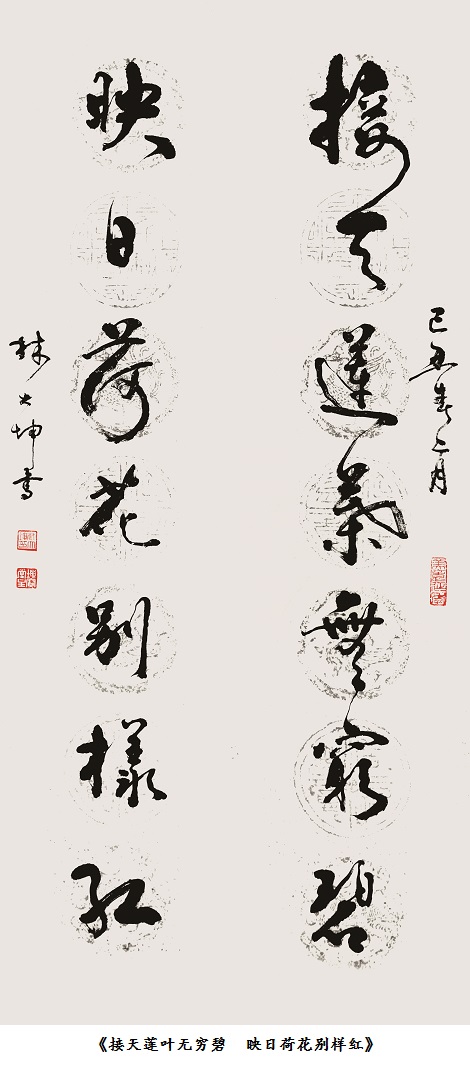 己丑春二月
接天蓮葉無窮碧
映日荷花别樣紅
林大坤書
《接天莲叶无穷碧 映日荷花别样红》